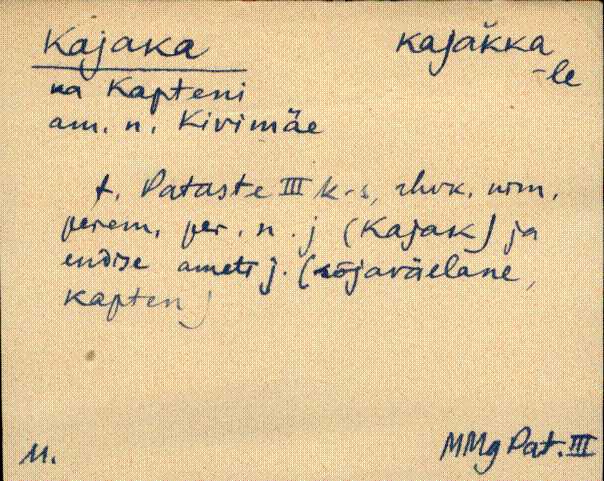 Kajaka kajaǩka
-le
ka Kapteni
am. n. Kivimäe
t. Pataste III k-s, rhvk. nim.
perem. per. n. j (Kajak) ja
endise ameti j. (sõjaväelane,
kapten)
M. MMg Pat. III